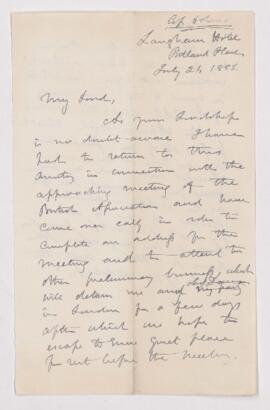 Langham Hotel
Portland Place
July 21, 188
My Lord,
As your Lordship
is no doubt aware I have
had to return to this
Country in connection with the
approaching meeting of the
British Association and have
come over early in order to
complete an address for the
meeting and to attend to
other preliminary business which
will detain me and
in London for a few days
after which we hope to
escape to some quiet place
for rest before the meeting.